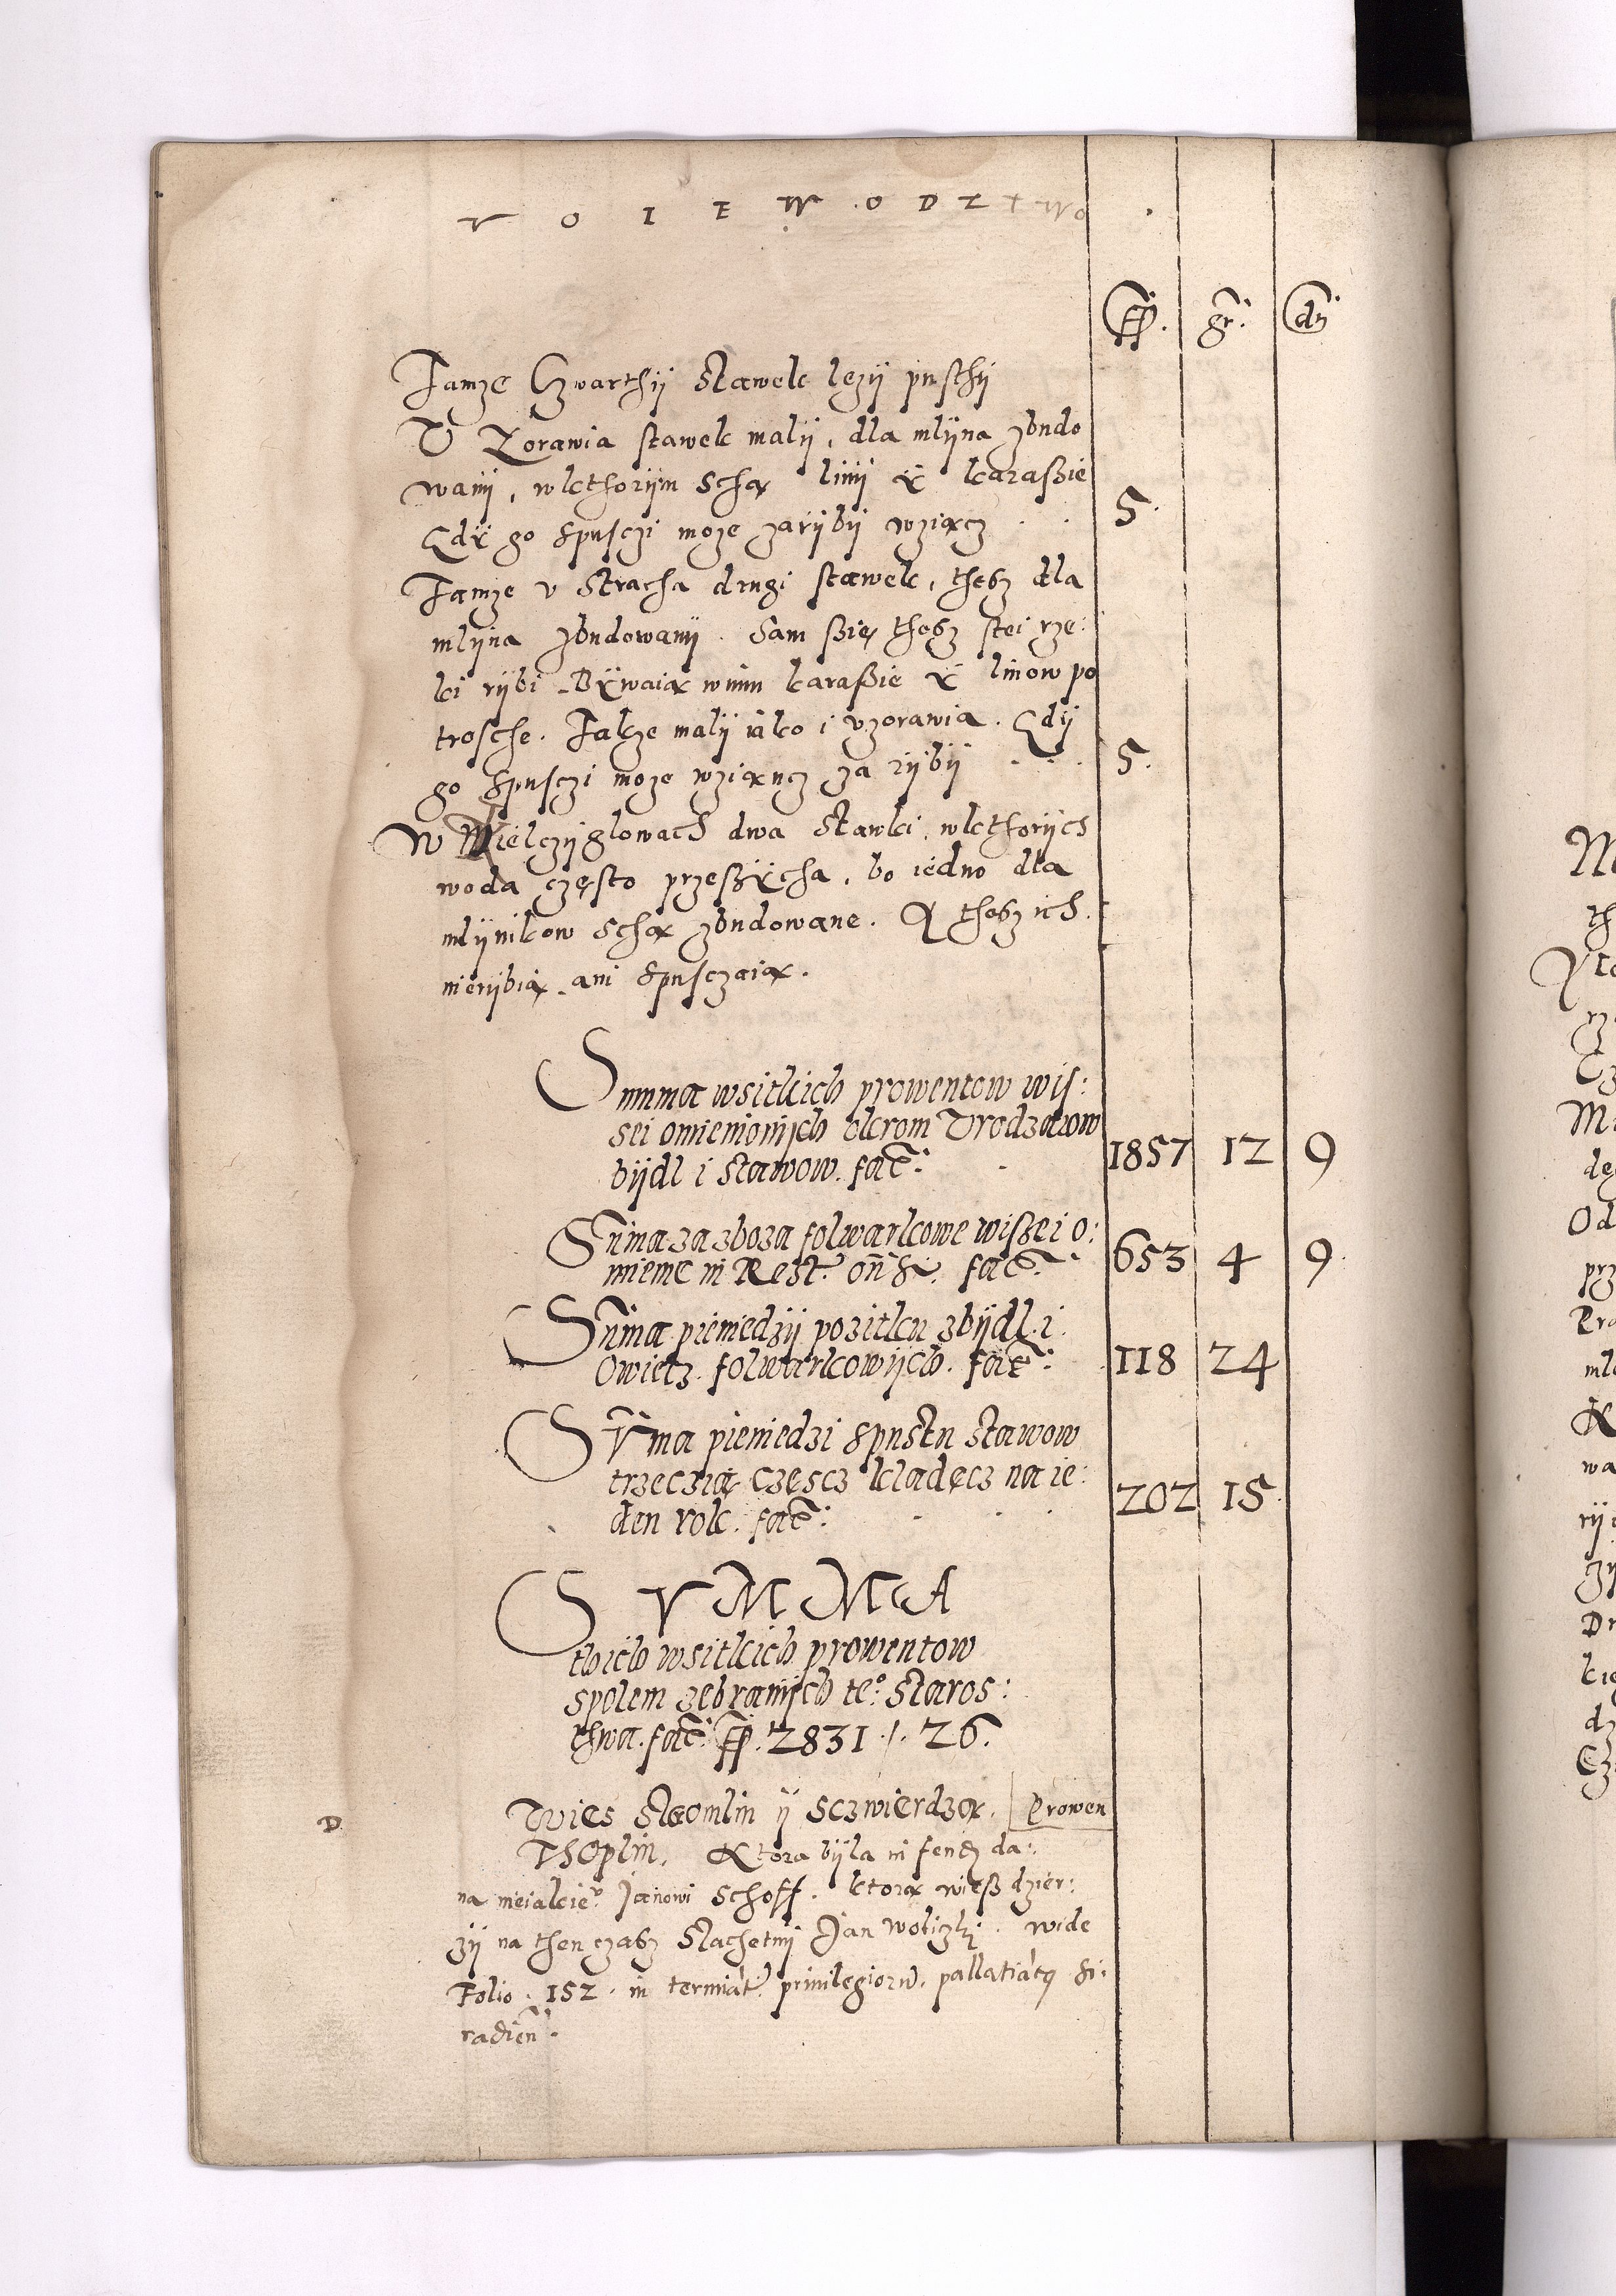 VOIEWODZTWO
fl. gr. dn
Tamze Czwarthÿ Stawek lezÿ pusthÿ
V Zorawia stawek malÿ, dla mlÿna zbudo
wanÿ, w kthorÿm schą linÿ ÿ karaßie
Gdÿ go spusczi moze za rÿbÿ wziącz . . 5.
Tamze v Stracha drugi stawek, thesz dla
mlÿna zbudowanÿ. Sam ßię thesz stei rze:
ki rÿbi. Bÿwaią w nim karaßie ÿ linow po
trosche. Takze malÿ iako i v zorawia. Gdÿ
go spusczi moze wziąncz za rÿbÿ . . . 5.
W Wielczÿglowach dwa Stawki, w kthorÿch
woda często przeßÿcha, bo iedno dla
mlÿnikow schą zbudowane. A thesz ich
nie rÿbią ani spusczaią.
Summa wsitkich prowentow wis:
sei omienionÿch okrom Vrodzaiow
bÿdl i Stawow. fac: . 1857 12 9
Suma za zboza folwarkowe wißei o:
mienie in Rest: fac: 653 4 9.
Suma pieniedzÿ pozitku z bÿdl i
Owiecz folwarkowÿch. fac: . 118 24
SVma pieniedzi Spustu Stawow
trzeczią częscz kladęcz na ie:
den rok. fac: . . . 202 15
SVMMA
thich wsitkich prowentow
spolem zebranÿch te° Staros:
thwa. fac: fl. 2831 /. 26.
D
Wies Skomlin ÿ Sczwierdzą. Prowen
Thoplin. Ktora bÿla in feud da:
na nieiakie° Janowi Schoff. ktorą wieß dzier:
zÿ na then czasz Slachetnÿ Jan Woliczki. wide
Folio. 152. in terminat. priuilegiorũ. pallatiatq Si:
radien.